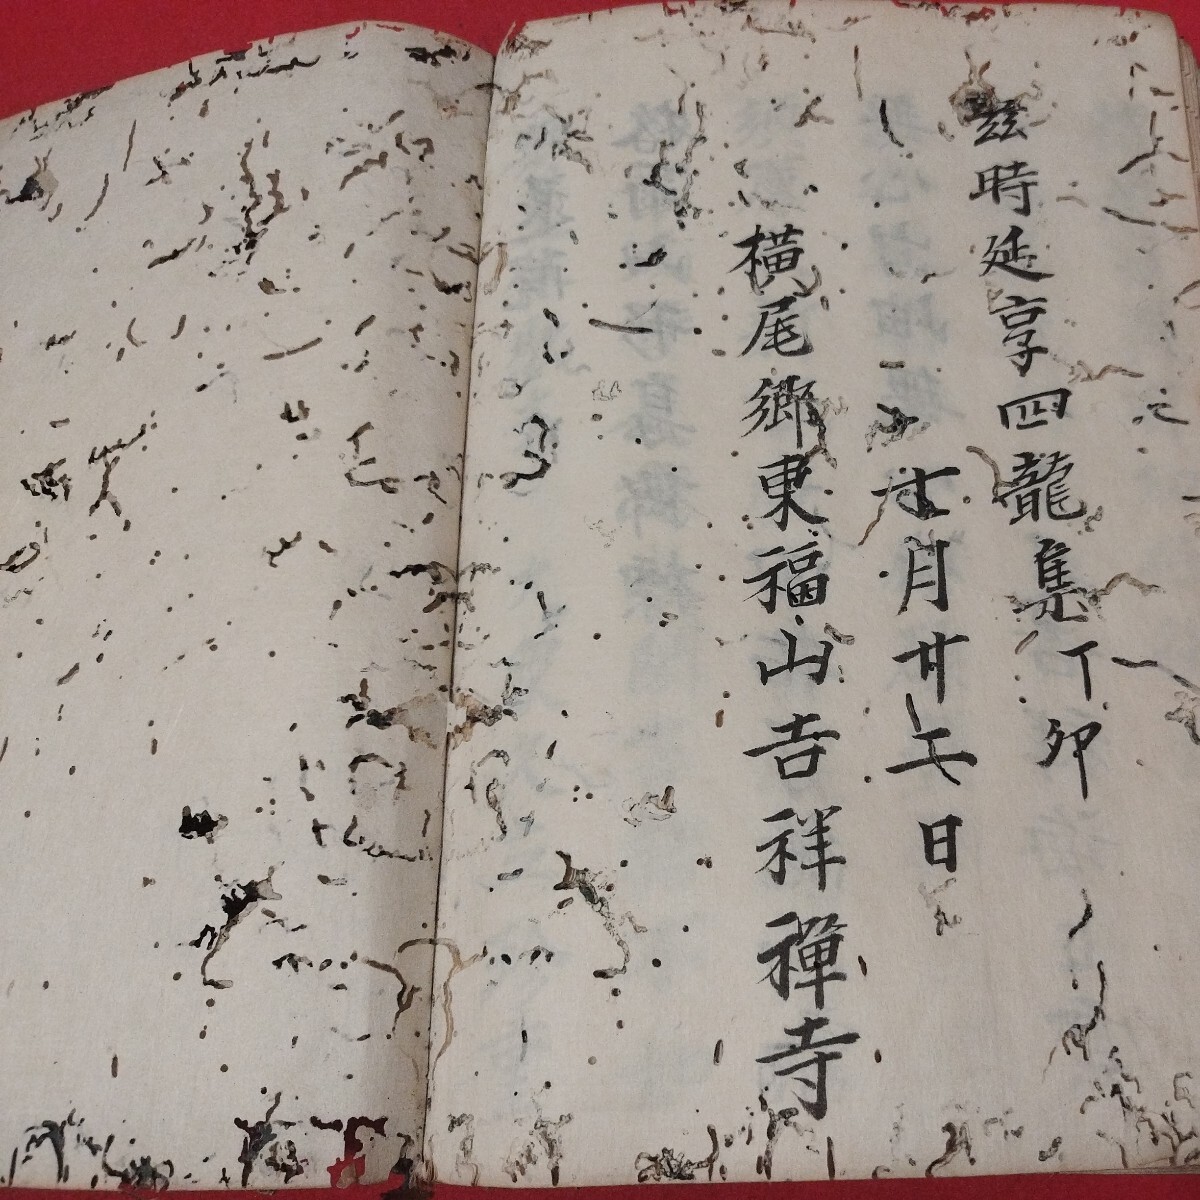 茲時延享四龍集丁卯
七月廿七日
横尾郷東福山吉祥禅寺